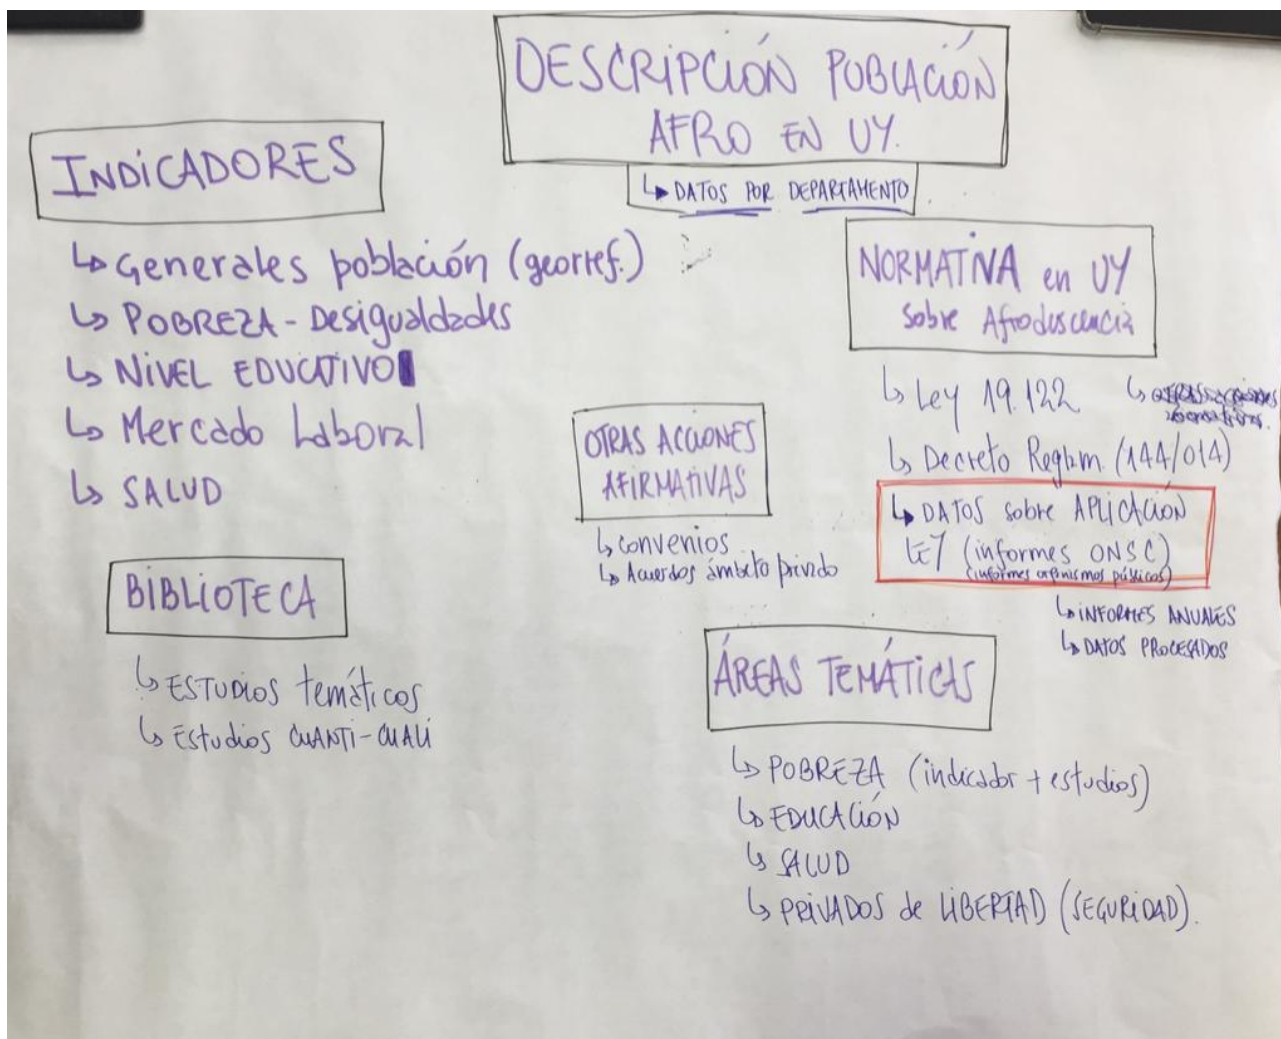 DESCRIPCIÓN POBLACIÓN
AFRO EN UY.
↳ DATOS POR DEPARTAMENTO
INDICADORES
↳ Generales población (georref.)
↳ POBREZA - Desigualdades
↳ NIVEL EDUCATIVO
↳ Mercado Laboral
↳ SALUD
BIBLIOTECA
↳ ESTUDIOS temáticos
↳ Estudios CUANTI-CUALI
OTRAS ACCIONES
AFIRMATIVAS
↳ convenios
↳ Acuerdos ámbito privado
NORMATIVA en UY
sobre Afrodescencia
↳ Ley 19.122
↳ Decreto Reglam. (144/014)
↳ DATOS sobre APLICACIÓN
LEY (informes ONSC)
(informes organismos públicos)
↳ INFORMES ANUALES
↳ DATOS PROCESADOS
ÁREAS TEMÁTICAS
↳ POBREZA (indicador + estudios)
↳ EDUCACIÓN
↳ SALUD
↳ PRIVADOS de LIBERTAD (SEGURIDAD).